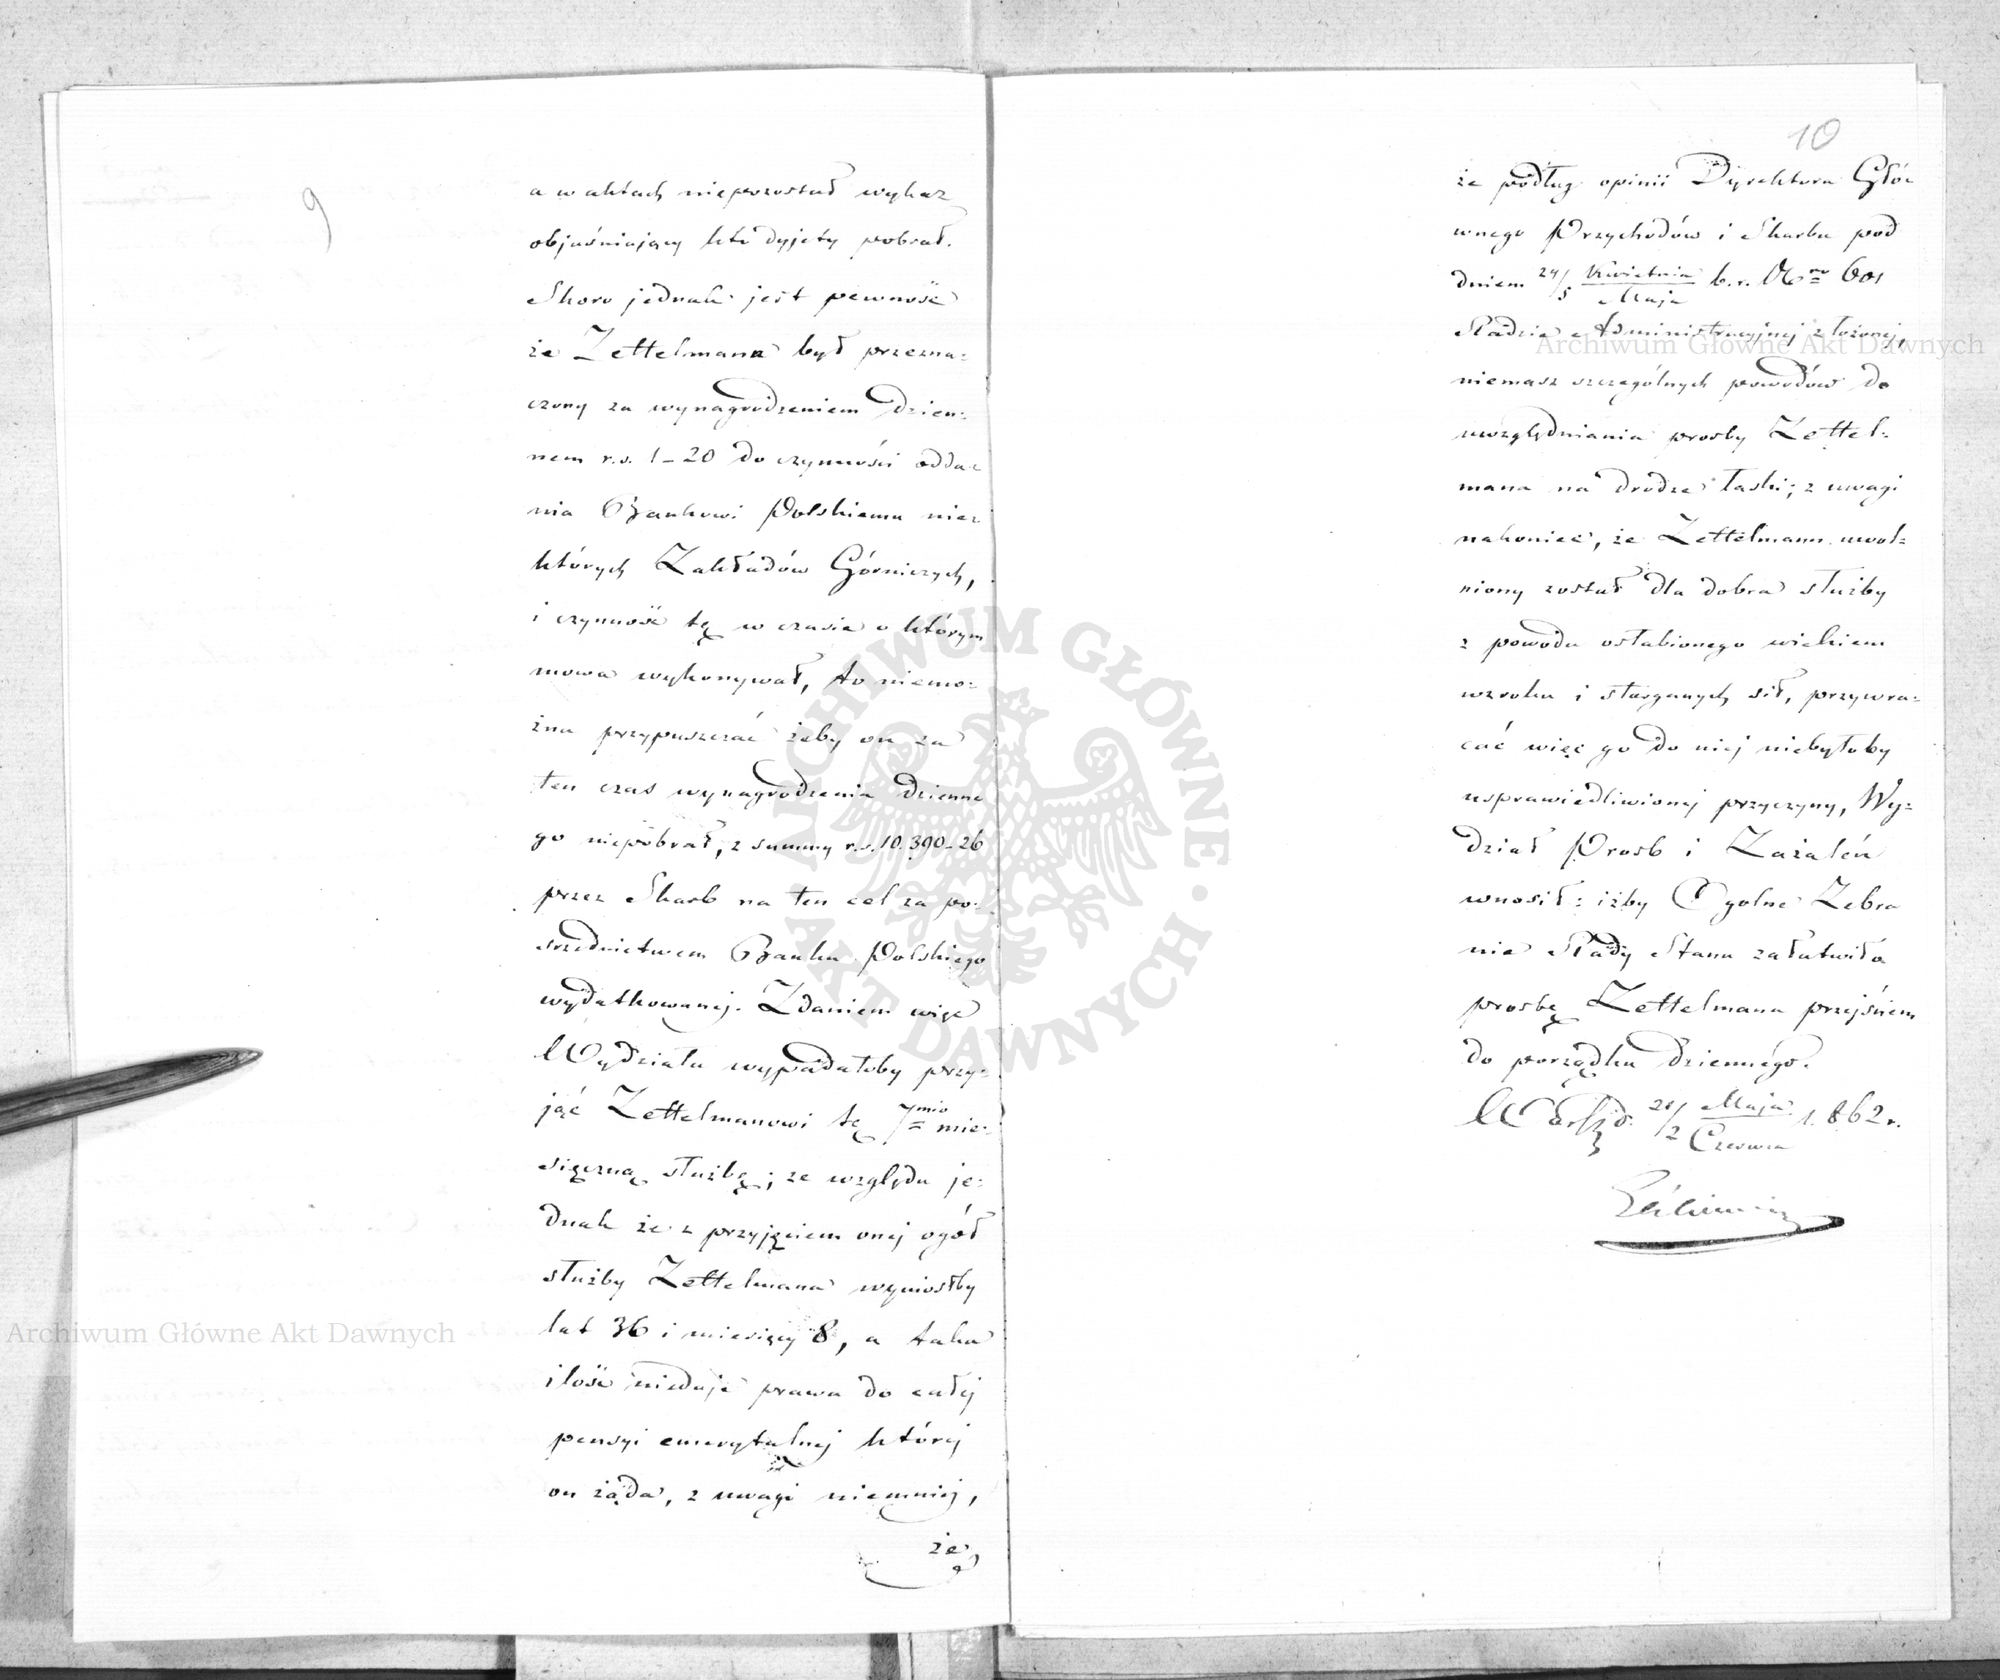 9
a w aktach niepozostał wykaz
objaśniający kto dyjety pobrał.
Skoro jednak jest pewność
że Zettelmann był przezna=
czony za wynagrodzeniem dzien=
nem r.s. 1-20 do czynności odda=
nia Bankowi Polskiemu nie=
których Zakładów Górniczych,
i czynność tę w czasie o którym
mowa wykonywał, to niemo=
żna przypuszczać żeby on za
ten czas wynagrodzenia dzienne
go niepobrał, z summy r.s. 10.390-26
przez Skarb na ten cel za po=
srzednictwem Banku Polskiego
wydatkowanej. Zdaniem więc
Wydziału wypadałoby przy=
jąć Zettelmanowi tę 7mio mie=
sięczną służbę; ze względu je=
dnak że z przyjęciem onej ogół
służby Zettelmana wyniosłby
lat 36 i miesięcy 8, a taka
ilość niedaje prawa do całej
pensyi emerytalnej której
on żąda, z uwagi niemniej,
że
10
że podług opinii Dyrektora Głó=
wnego Przychodów i Skarbu pod
dniem 24/5 Kwietnia/Maja b.r. No 601
Radzie Administracyjnej złożonej,
niemasz szczególnych powodów do
uwzględniania prosby Zettel=
mana na drodze łaski; z uwagi
nakoniec, że Zettelmann uwol=
niony został dla dobra służby
z powodu osłabionego wiekiem
wzroku i starganych sił, przywra=
cać więc go do niej niebyłoby
usprawiedliwionej przyczyny, Wy=
dział Prosb i Zażaleń
wnosił: iżby Ogolne Zebra
nie Rady Stanu załatwiło
prosbę Zettelmana przejściem
do porządku dziennego.
21/2 Maja/Czerwca 1862 r.
Archiwum Główne Akt Dawnych
Archiwum Główne Akt Dawnych
ARCHIWUM GŁÓWNE · AKT DAWNYCH ·